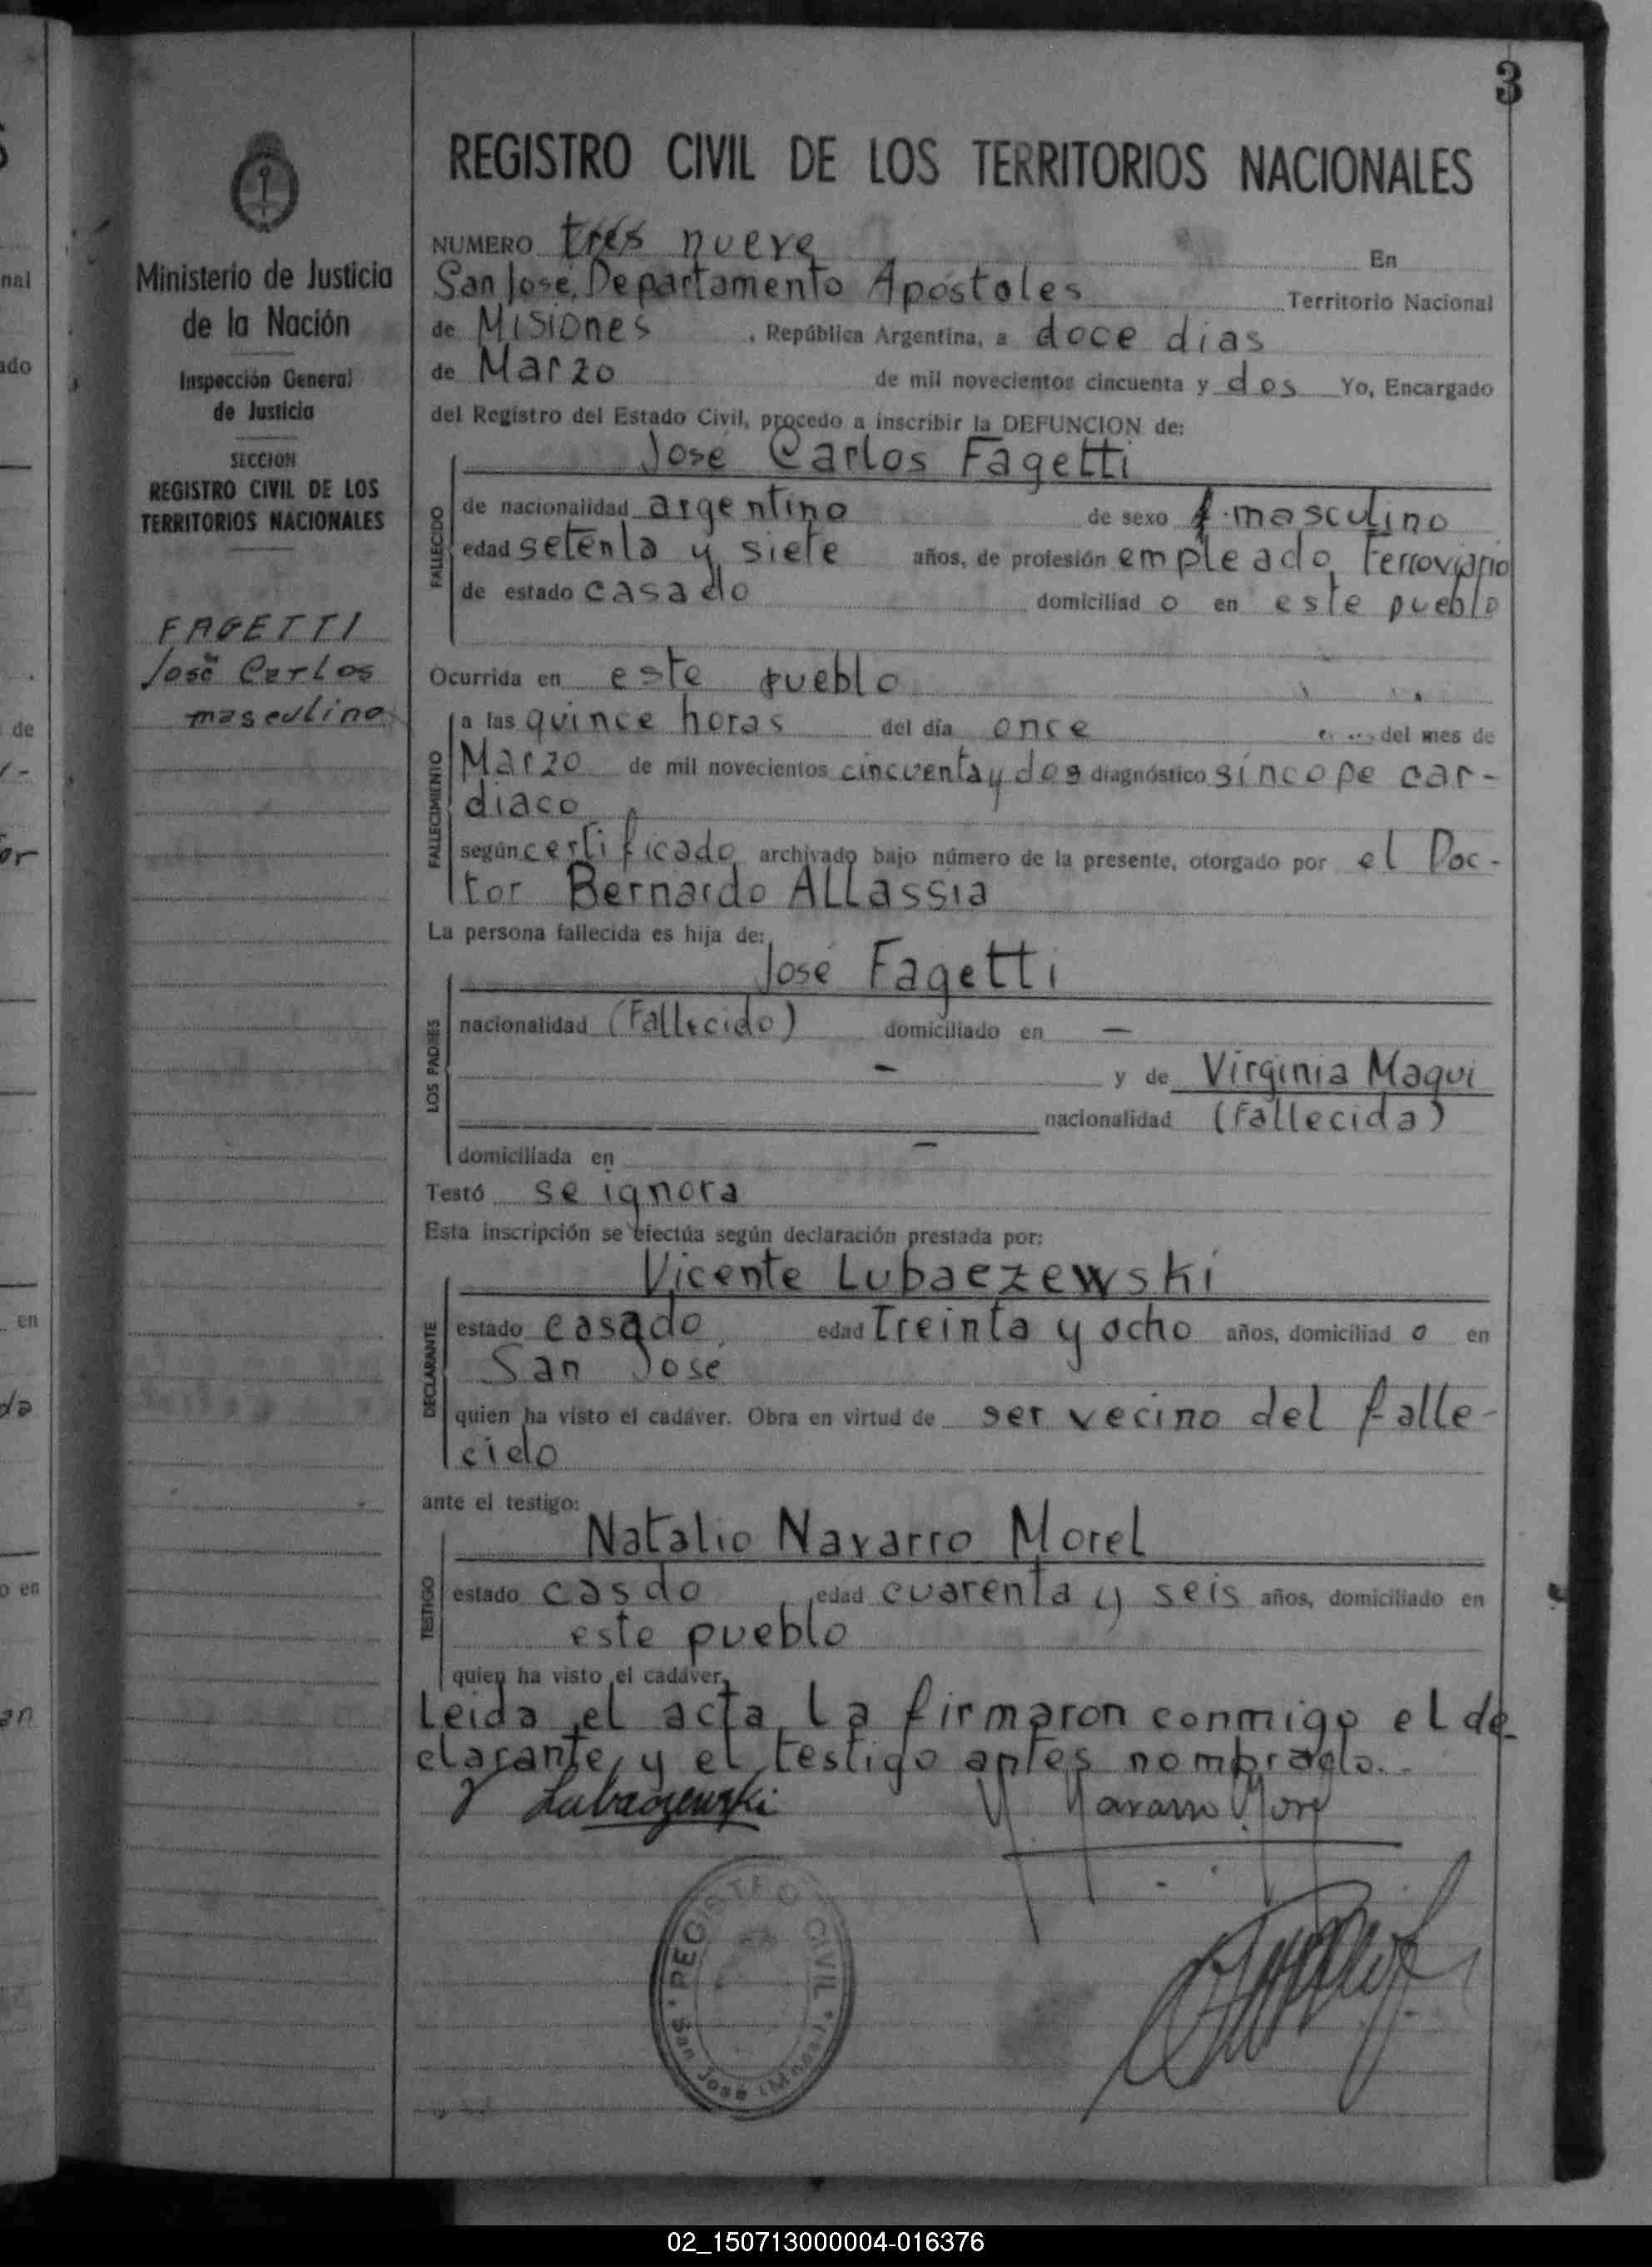 3
REGISTRO CIVIL DE LOS TERRITORIOS NACIONALES
Ministerio de Justicia
de la Nación
Inspección General
de Justicia
SECCION
REGISTRO CIVIL DE LOS
TERRITORIOS NACIONALES
FAGETTI
José Carlos
masculino
NUMERO tres nueve En
San José, Departamento Apóstoles Territorio Nacional
de Misiones, República Argentina, a doce días
de Marzo de mil novecientos cincuenta y dos Yo, Encargado
del Registro del Estado Civil, procedo a inscribir la DEFUNCION de:
José Carlos Fagetti
FALLECIDO
de nacionalidad argentino de sexo masculino
edad setenta y siete años, de profesión empleado ferroviario
de estado casado domiciliad o en este pueblo
Ocurrida en este pueblo
FALLECIMIENTO
a las quince horas del día once del mes de
Marzo de mil novecientos cincuenta y dos diagnóstico síncope car-
diaco
según certificado archivado bajo número de la presente, otorgado por el Doc-
tor Bernardo ALLassia
La persona fallecida es hija de:
José Fagetti
LOS PADRES
nacionalidad (Fallecido) domiciliado en —
— y de Virginia Maqui
nacionalidad (Fallecida)
domiciliada en —
Testó se ignora
Esta inscripción se efectúa según declaración prestada por:
Vicente Lubaezewski
DECLARANTE
estado casado edad Treinta y ocho años, domiciliad o en
San José
quien ha visto el cadáver. Obra en virtud de ser vecino del falle-
cido
ante el testigo:
Natalio Navarro Morel
TESTIGO
estado casdo edad cuarenta y seis años, domiciliado en
este pueblo
quien ha visto el cadáver.
Leida el acta, la firmaron conmigo el de-
clarante y el testigo antes nombrado..
V Lubaczewski N Navarro Morel
REGISTRO CIVIL
San José (Mnes.)
02_150713000004-016376